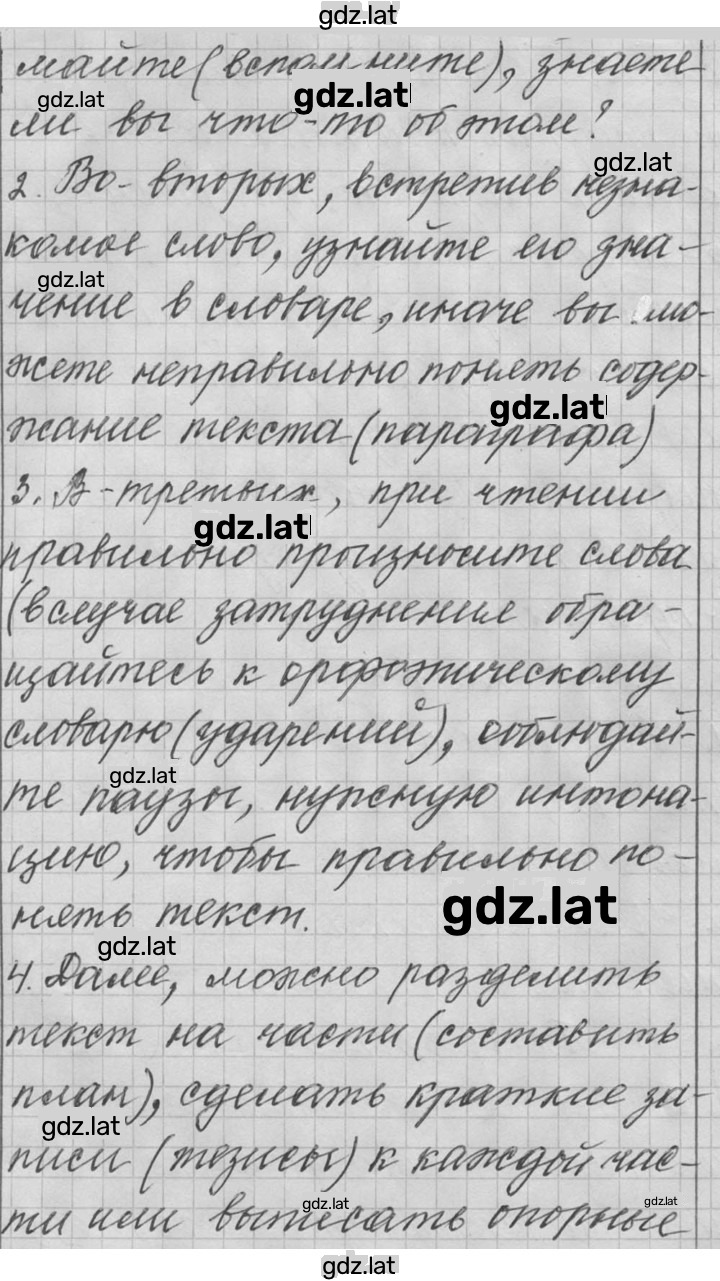 gdz.lat
майте (вспомните), знаете
gdz.lat
gdz.lat
ли вы что-то об этом?
gdz.lat
2. Во-вторых, встретив незна-
комое слово, узнайте его зна-
gdz.lat
чение в словаре, иначе вы мо-
жете неправильно понять содер-
gdz.lat
жание текста (параграфа)
3. В-третьих, при чтении
gdz.lat
правильно произносите слова
(в случае затруднения обра-
щайтесь к орфоэпическому
словарю (ударений), соблюдай-
gdz.lat
те паузы, нужную интона-
цию, чтобы правильно по-
нять текст.
gdz.lat
gdz.lat
4. Далее, можно разделить
текст на части (составить
план), сделать краткие за-
gdz.lat
писи (тезисы) к каждой час-
gdz.lat
gdz.lat
ти или выписать опорные
gdz.lat